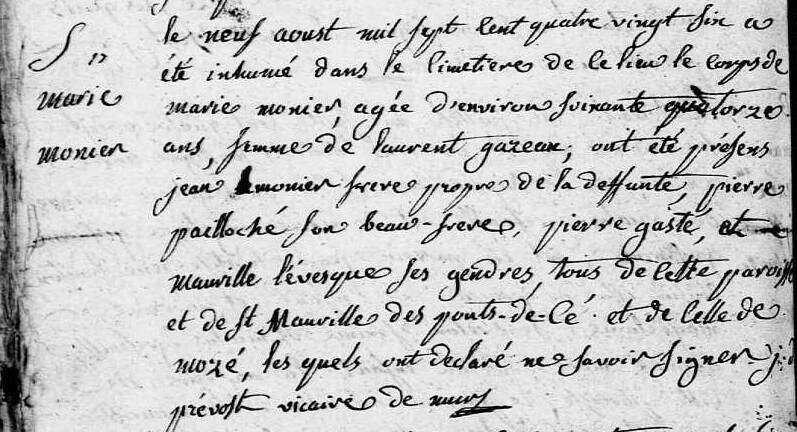 S.n
marie
monier
le neuf aoust mil sept cent quatre vingt six a
été inhumé dans le cimetiere de ce lieu le corps de
marie monier, agée d'environ soixante quatorze
ans, femme de laurent gazeau; ont été présens
jean monier frere propre de la deffunte, pierre
pailloché son beau-frere, pierre gasté, et
mauville l'évesque ses gendres, tous de cette paroisse
et de st Mauville des ponts-de-cé. et de celle de
mozé, les quels ont déclaré ne savoir signer. j:
prévost vicaire de murs